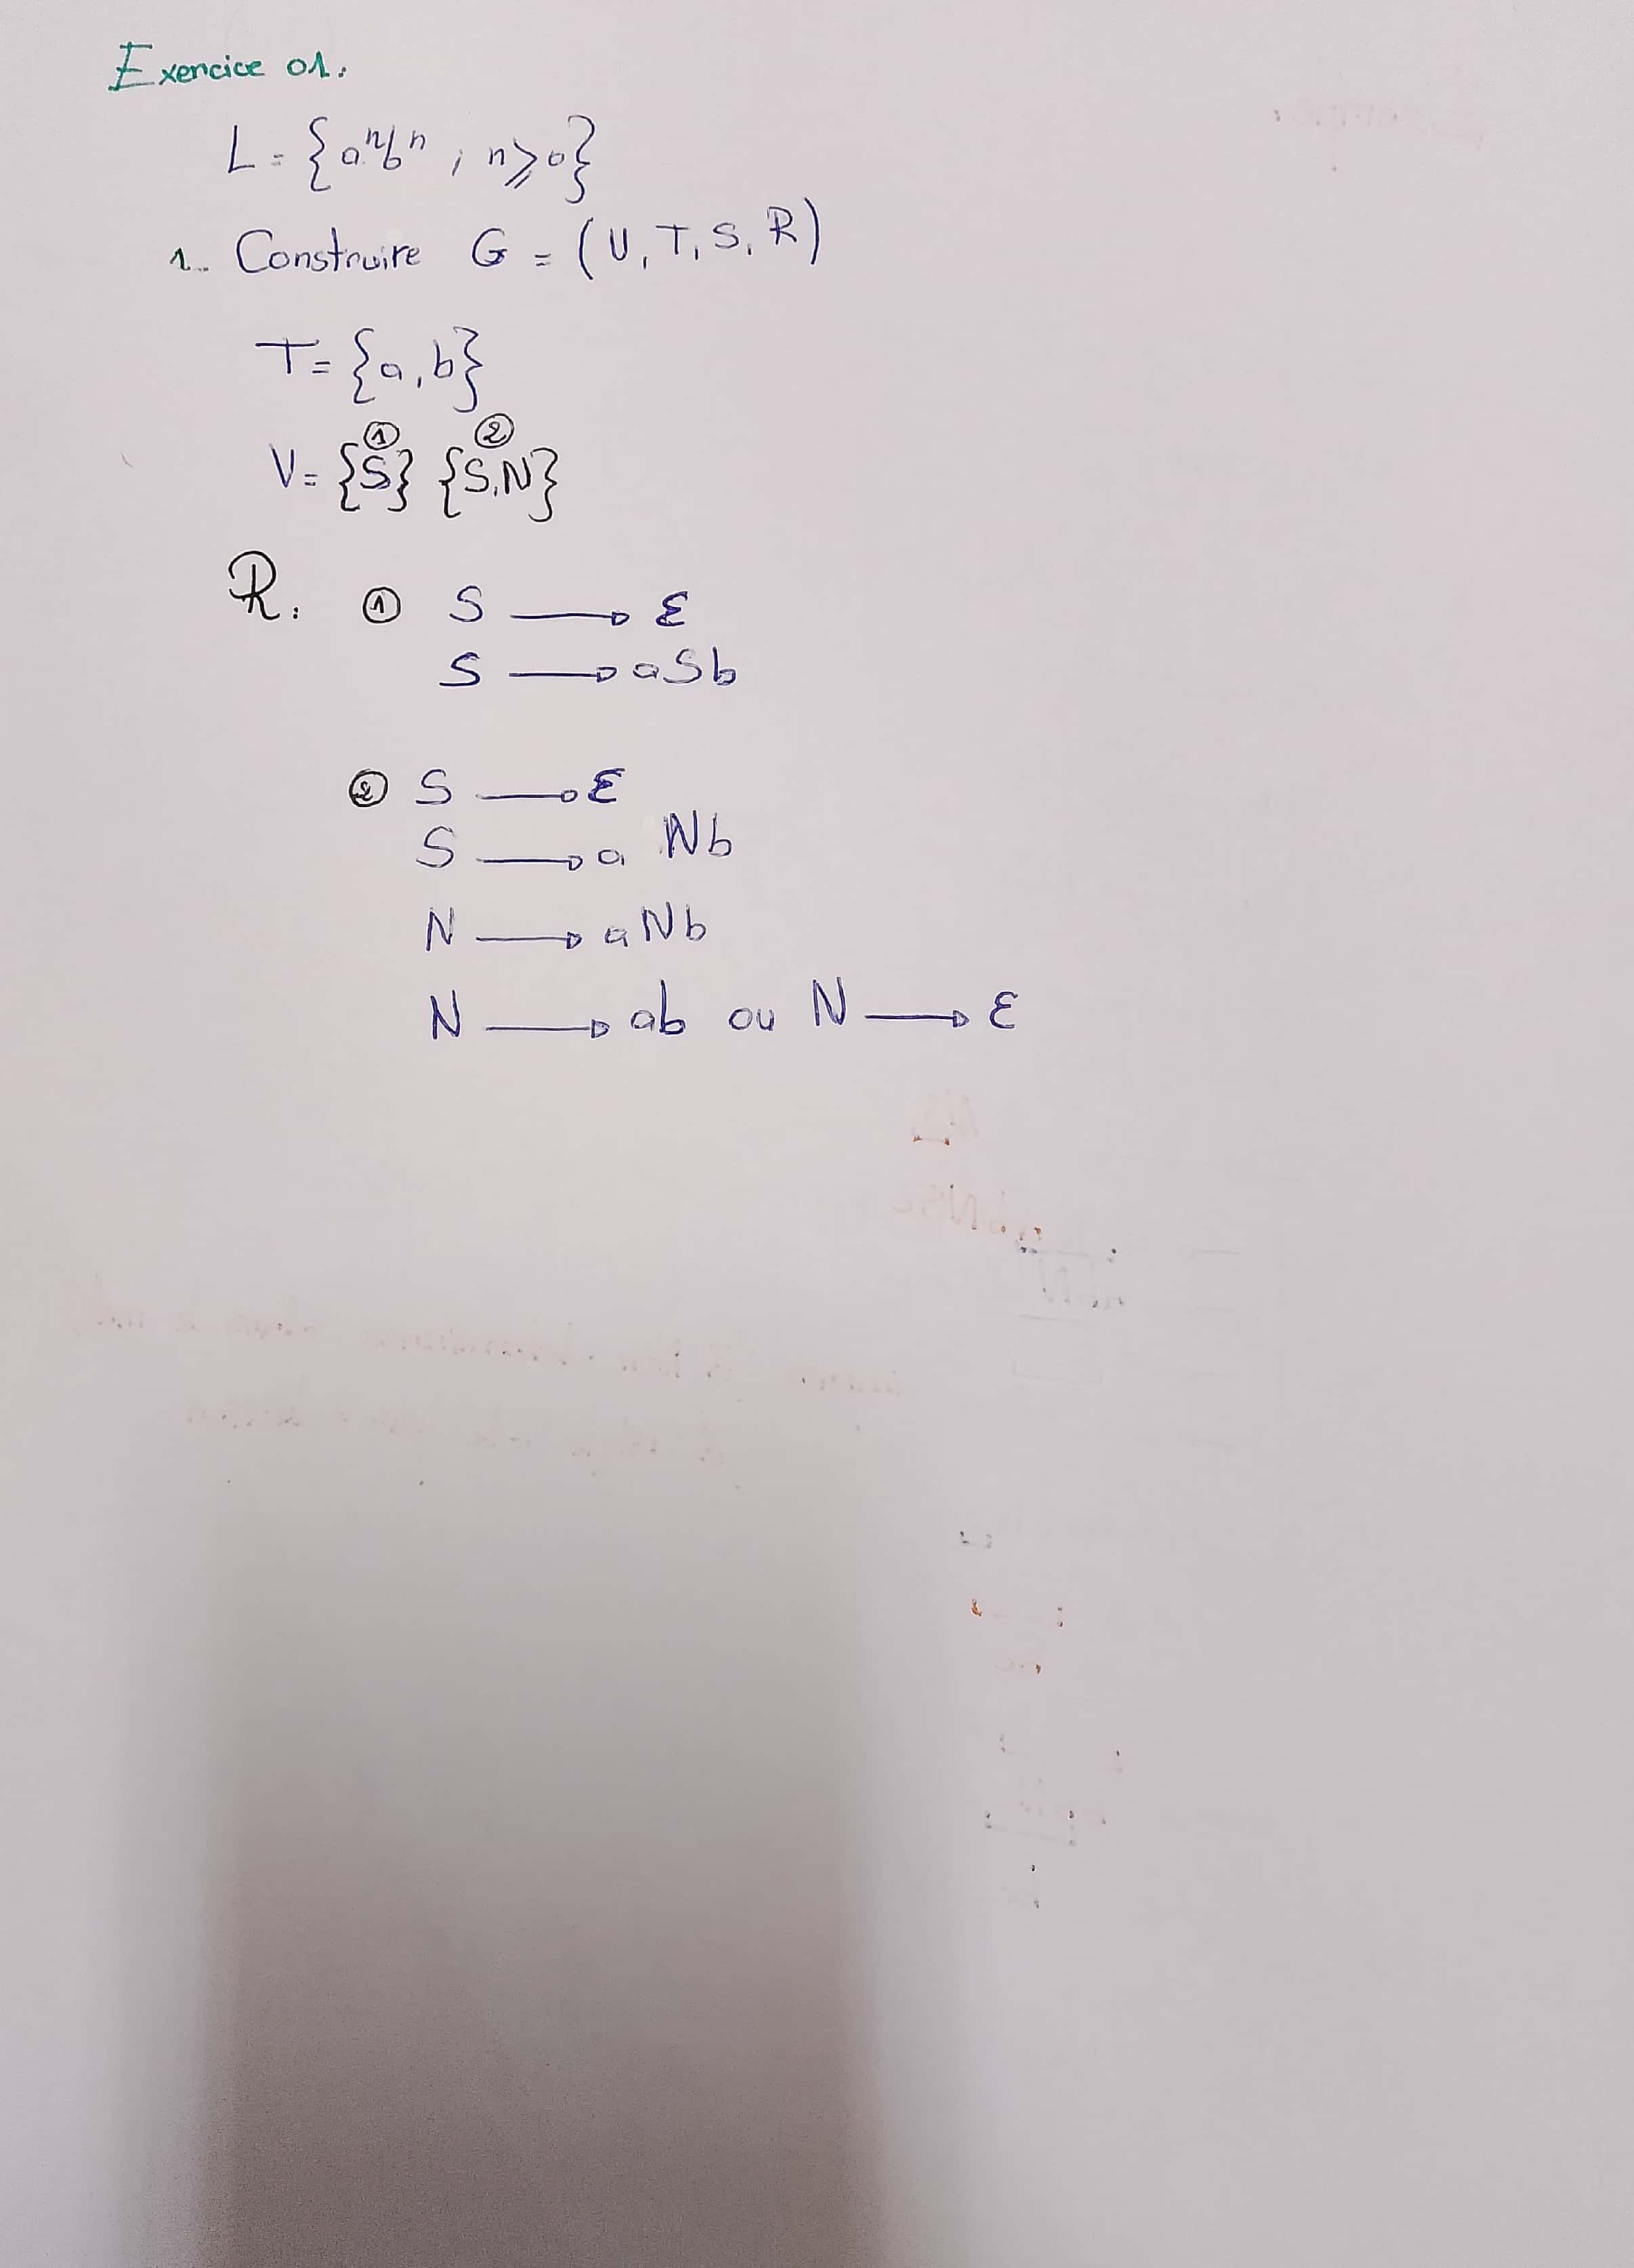 Exercice 01:
L = {aⁿbⁿ ; n ⩾ 0}
1. Construire G = (V, T, S, R)
T = {a, b}
① ②
V = {S} {S, N}
R: ① S → ε
S → aSb
② S → ε
S → a Nb
N → aNb
N → ab ou N → ε